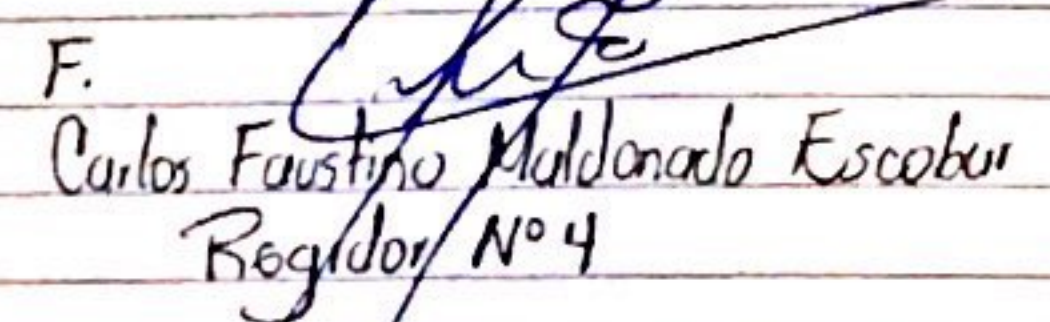 F.
Carlos Faustino Maldonado Escobar
Regidor Nº 4